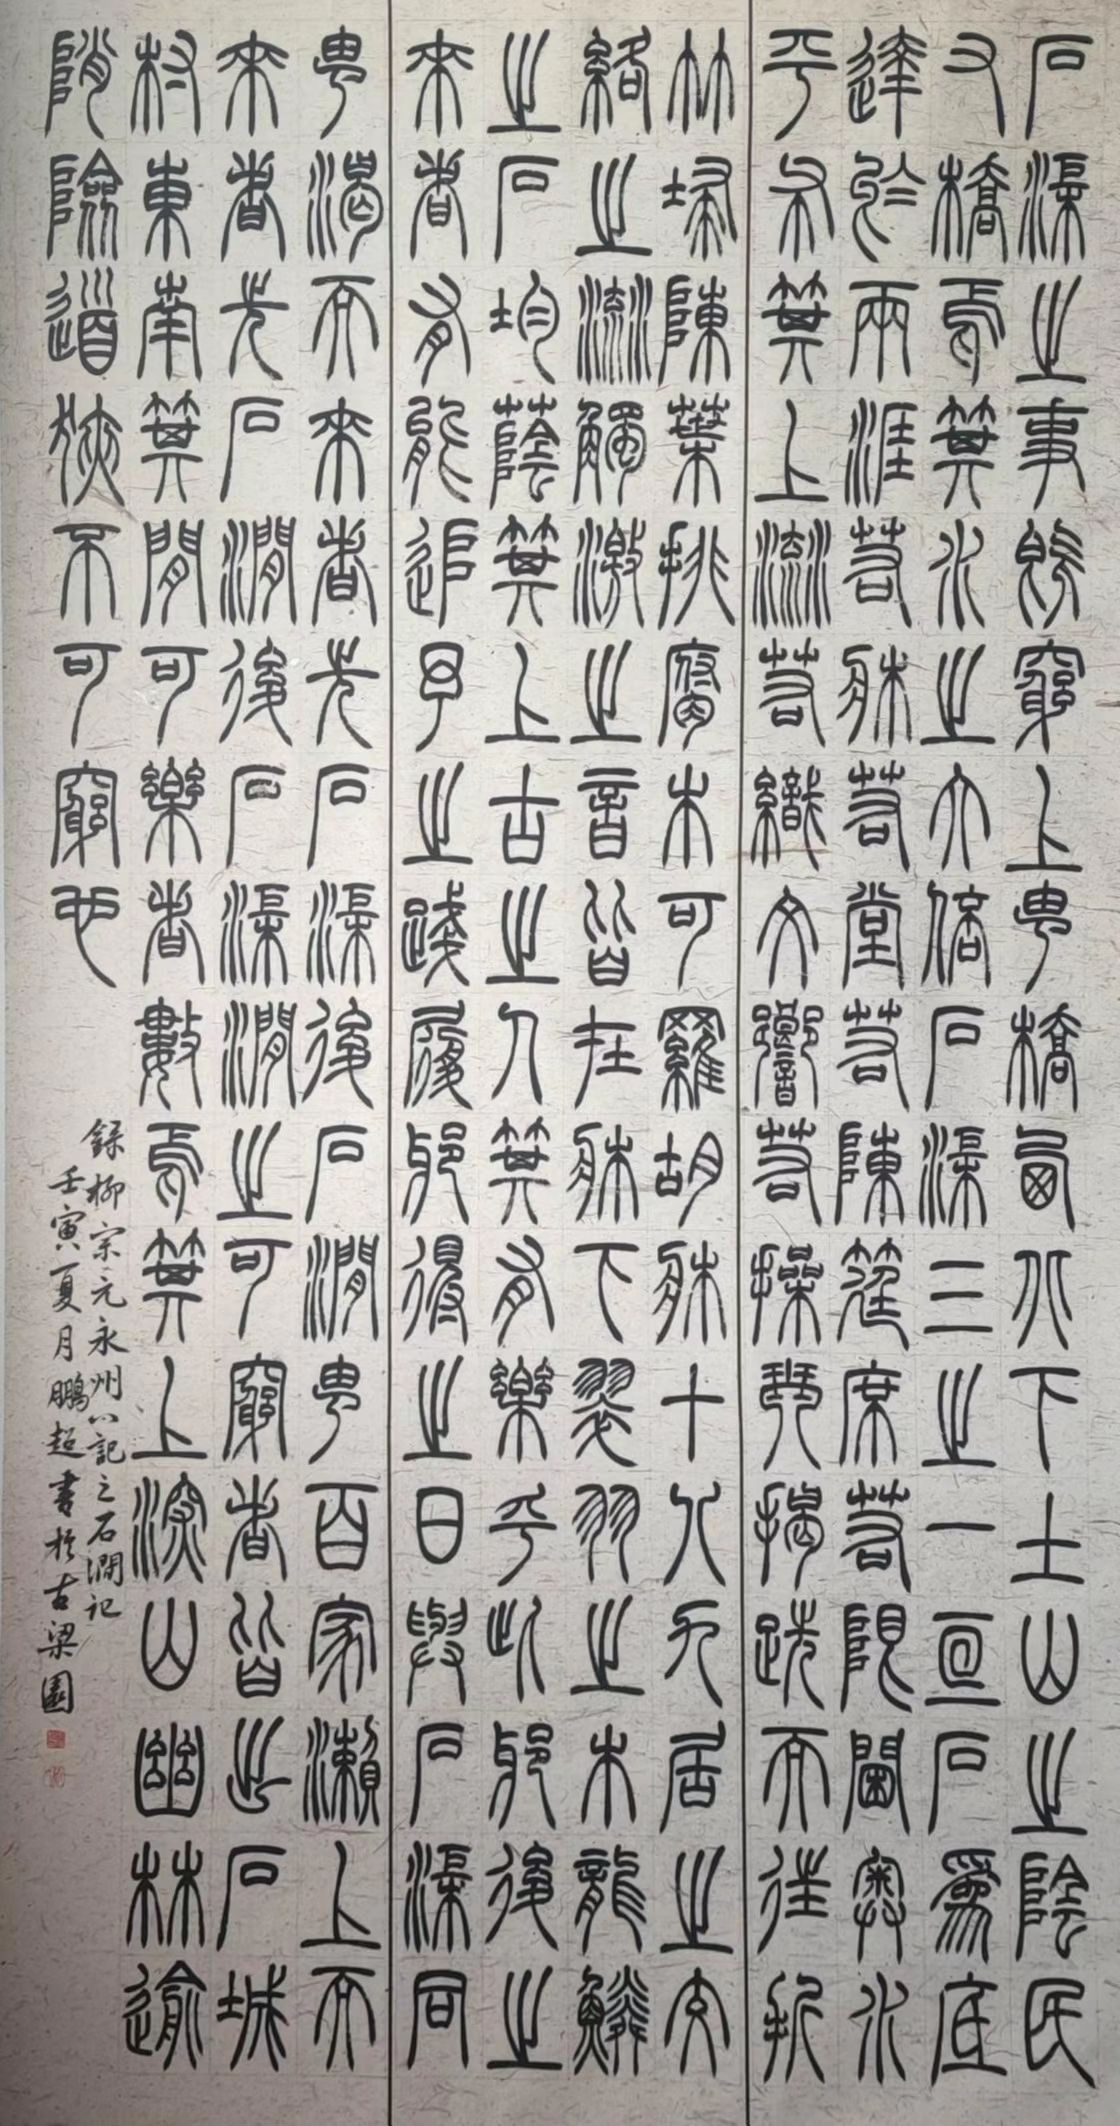 石渠之事既窮上由橋西北下土山之陰民
又橋焉其水之大倍石渠三之一亘石為底
達於兩涯若牀若堂若陳筵席若限閫奧水
平布其上流若織文響若操琴揭跣而往折
竹掃陳葉排腐木可羅胡牀十八九居之交
絡之流觸激之音皆在牀下翠羽之木龍鱗
之石均蔭其上古之人其有樂乎此邪後之
來者有能追予之踐履邪得之日與石渠同
由渴而來者先石渠後石澗由百家瀨上而
來者先石澗後石渠澗之可窮者皆出石城
村東南其間可樂者數焉其上深山幽林逾
陗險道狹不可窮也
錄柳宗元永州八記之石澗記
壬寅夏月鵬超書於古梁園